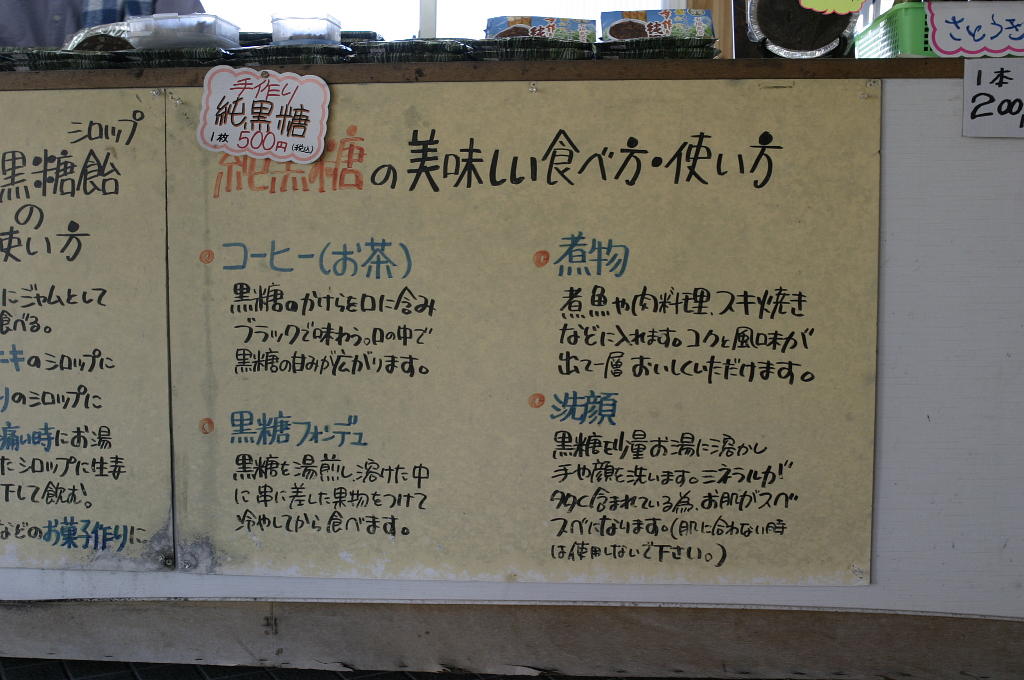 さとうき
1本
200
手作り
純黒糖
1枚 500円(税込)
シロップ
黒糖飴
の
使い方
にジャムとして
食べる。
ーキのシロップに
りのシロップに
痛い時にお湯
たシロップに生姜
下して飲む!
などのお菓子作りに
純黒糖の美味しい食べ方・使い方
コーヒー(お茶)
黒糖のかけらを口に含み
ブラックで味わう。口の中で
黒糖の甘みが広がります。
黒糖フォンデュ
黒糖を湯煎し、溶けた中
に串に差した果物をつけて
冷やしてから食べます。
煮物
煮魚や肉料理、スキ焼き
などに入れます。コクと風味が
出て一層おいしくいただけます。
洗顔
黒糖を少量お湯に溶かし
手や顔を洗います。ミネラルが
多く含まれている為、お肌がスベ
スベになります。(肌に合わない時
は使用しないで下さい。)